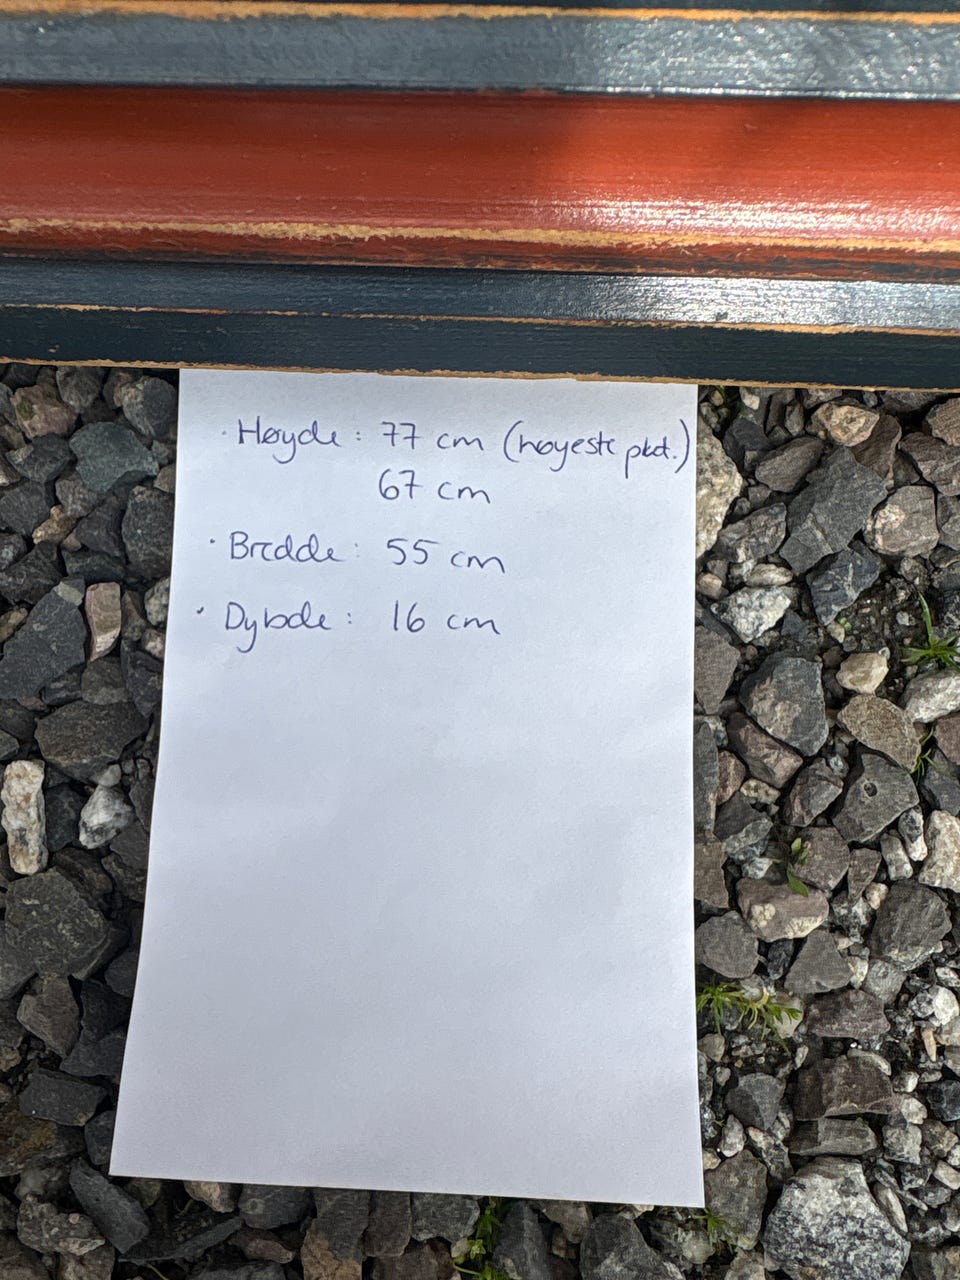 · Høyde : 77 cm (høyeste pkt.)
67 cm
· Bredde : 55 cm
· Dybde : 16 cm